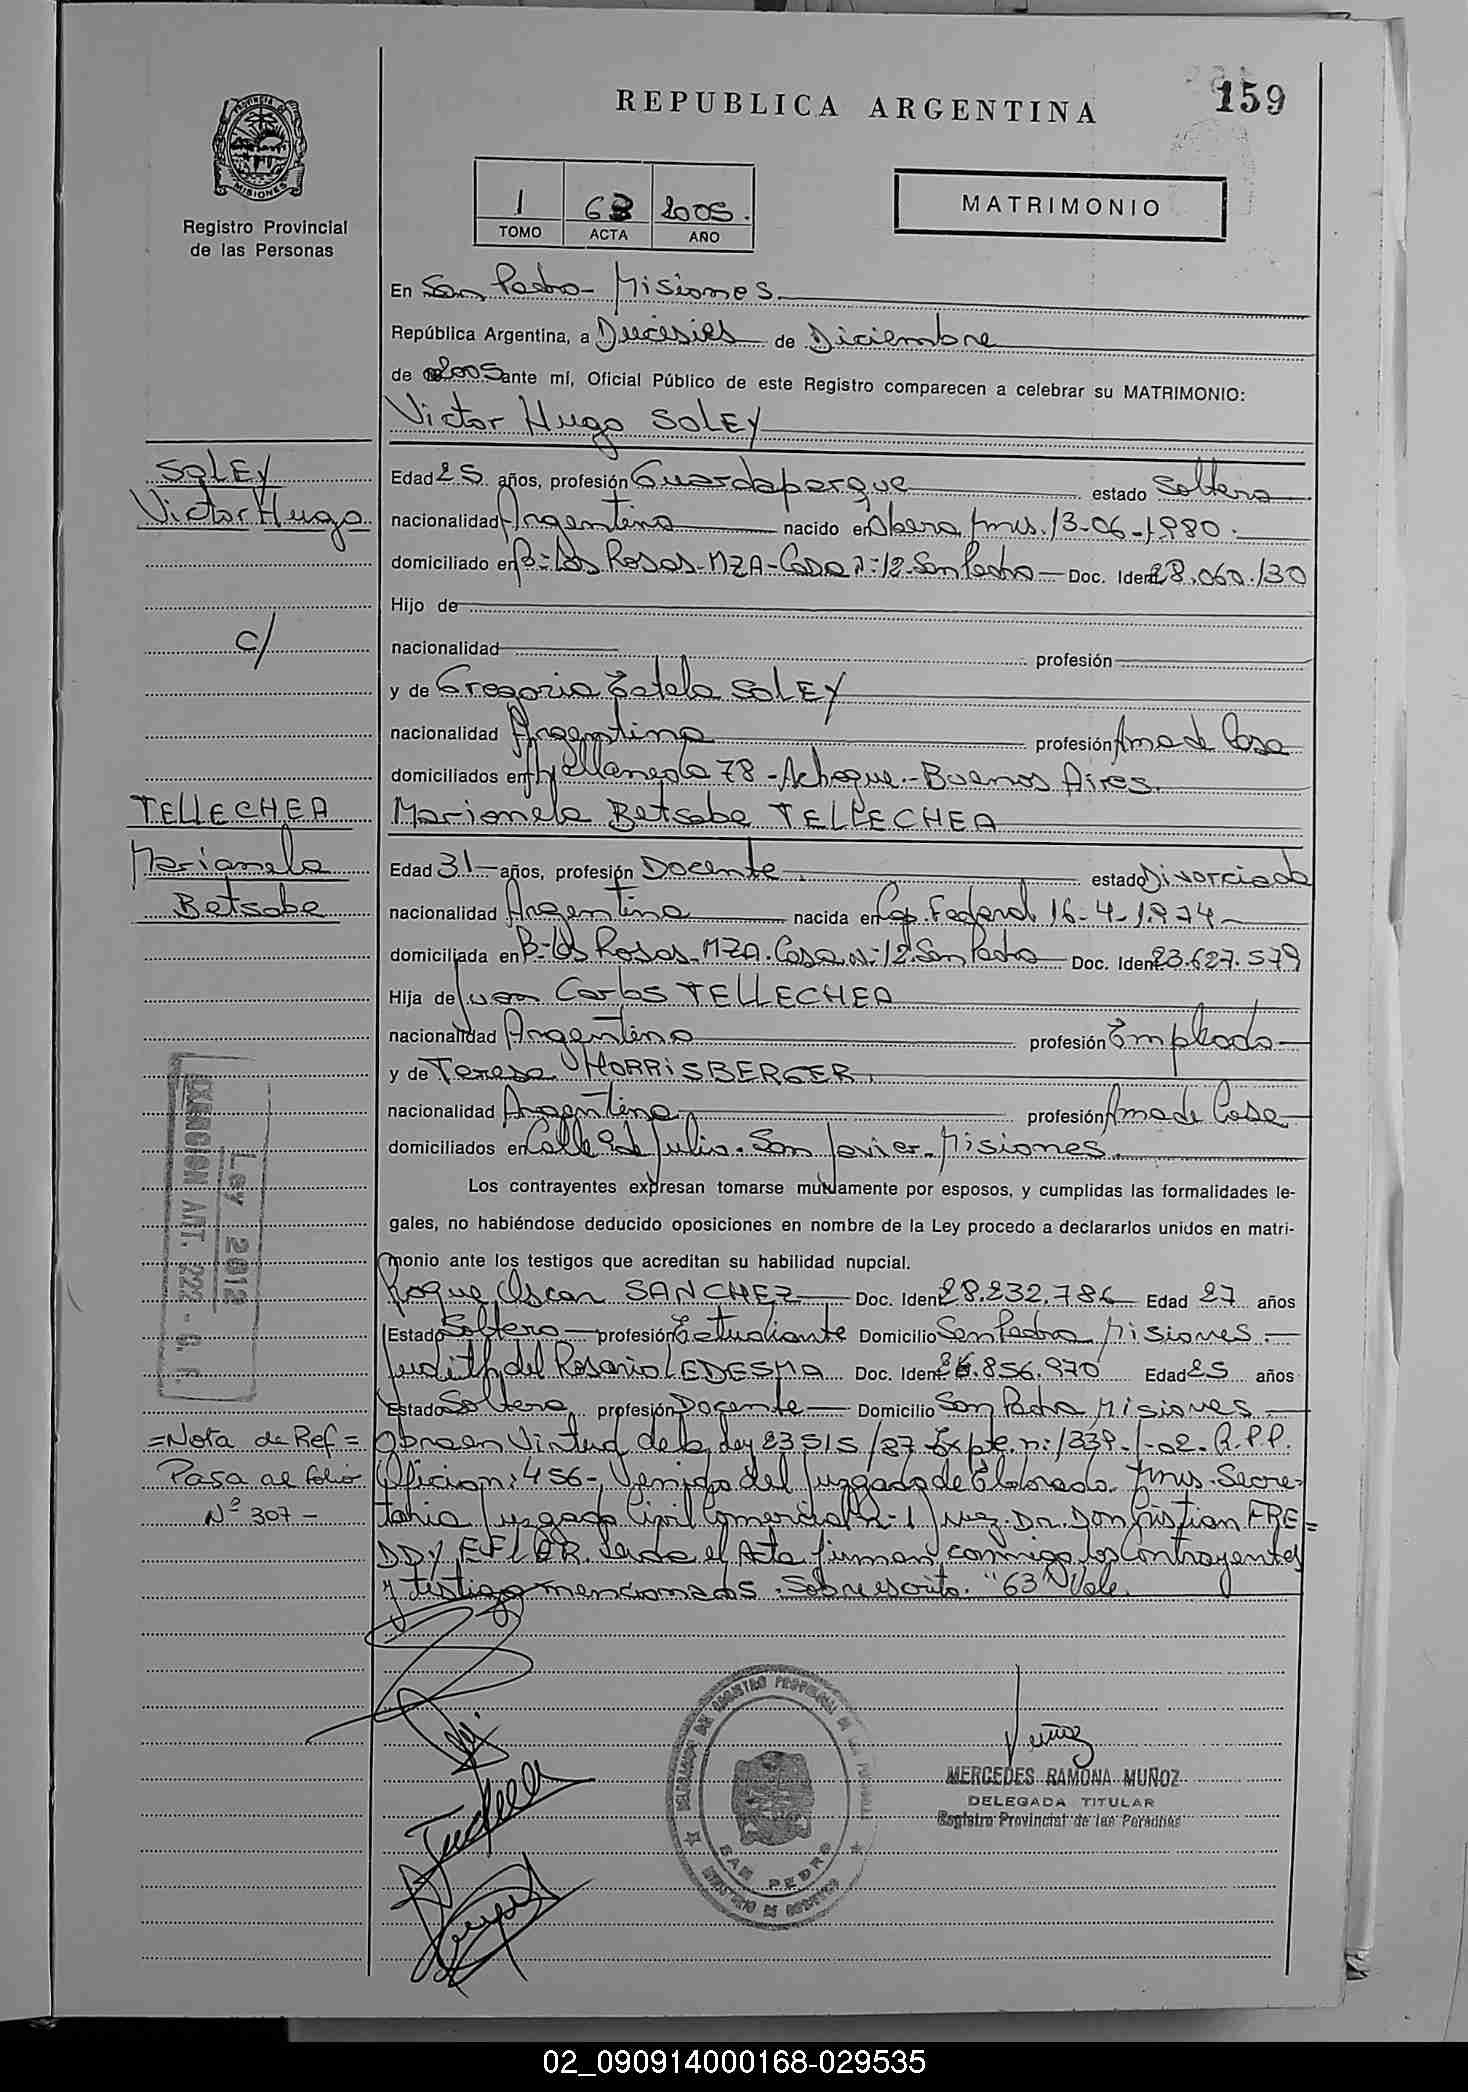 159
REPUBLICA ARGENTINA
PROVINCIA DE
MISIONES
Registro Provincial
de las Personas
1 63 2005.
TOMO ACTA AÑO
MATRIMONIO
En San Pedro - Misiones
República Argentina, a Diecisies de Diciembre
de 2005 ante mí, Oficial Público de este Registro comparecen a celebrar su MATRIMONIO:
Victor Hugo SOLEY
SOLEY
Victor Hugo
c/
Edad 25 años, profesión Guardaparque estado Soltero
nacionalidad Argentina nacido en Obera, Mnes. 13-06-1980.
domiciliado en B= Las Rosas-MZA-Casa n: 12-San Pedro Doc. Ident 28.060.130
Hijo de
nacionalidad profesión
y de Gregoria SOLEY
nacionalidad Argentina profesión Ama de Casa
domiciliados en 78 - - Buenos Aires.
TELLECHEA
Marianela
Betsabe
Marianela Betsabe TELLECHEA
Edad 31 años, profesión Docente estado Divorciada
nacionalidad Argentina nacida en Cap. Federal 16-4-1974
domiciliada en B= Las Rosas-MZA. Casa N: 12 San Pedro Doc. Ident 23.627.579
Hija de Juan Carlos TELLECHEA
nacionalidad Argentino profesión Empleado
y de Teresa HORRISBERGER.
nacionalidad Argentina profesión Ama de Casa
domiciliados en Calle 9 de Julio. San Javier-Misiones.
Los contrayentes expresan tomarse mutuamente por esposos, y cumplidas las formalidades le-
gales, no habiéndose deducido oposiciones en nombre de la Ley procedo a declararlos unidos en matri-
monio ante los testigos que acreditan su habilidad nupcial.
Ley 2812
EXENCION ART. 222 - C. F.
Roque Oscar SANCHEZ Doc. Ident 28.232.786 Edad 27 años
Estado Soltero profesión Estudiante Domicilio San Pedro Misiones.
Judith del Rosario LEDESMA Doc. Ident .856.970 Edad 25 años
Estado Soltera profesión Docente Domicilio San Pedro Misiones
=Nota de Ref=
Pasa al folio
Nº 307-
Obra en Virtud de la ley 23515/87 Expte. n: 1339-1-02. R.P.P.
Oficio n: 456-, Venido del Juzgado de Eldorado. Mnes. Secre=
taria Juzgado Civil Comercial n-1 Juez. Dr. Don Cristian FRE=
DDY EFLER. Leida el Acta firman conmigo los Contrayentes
y testigo mencionados. Sobreescrito. "63" Vale.
DELEGACION DE REGISTRO PROVINCIAL DE LAS PERSONAS
SAN PEDRO
MINISTERIO DE GOBIERNO
MERCEDES RAMONA MUÑOZ
DELEGADA TITULAR
Registro Provincial de las Personas
02_090914000168-029535